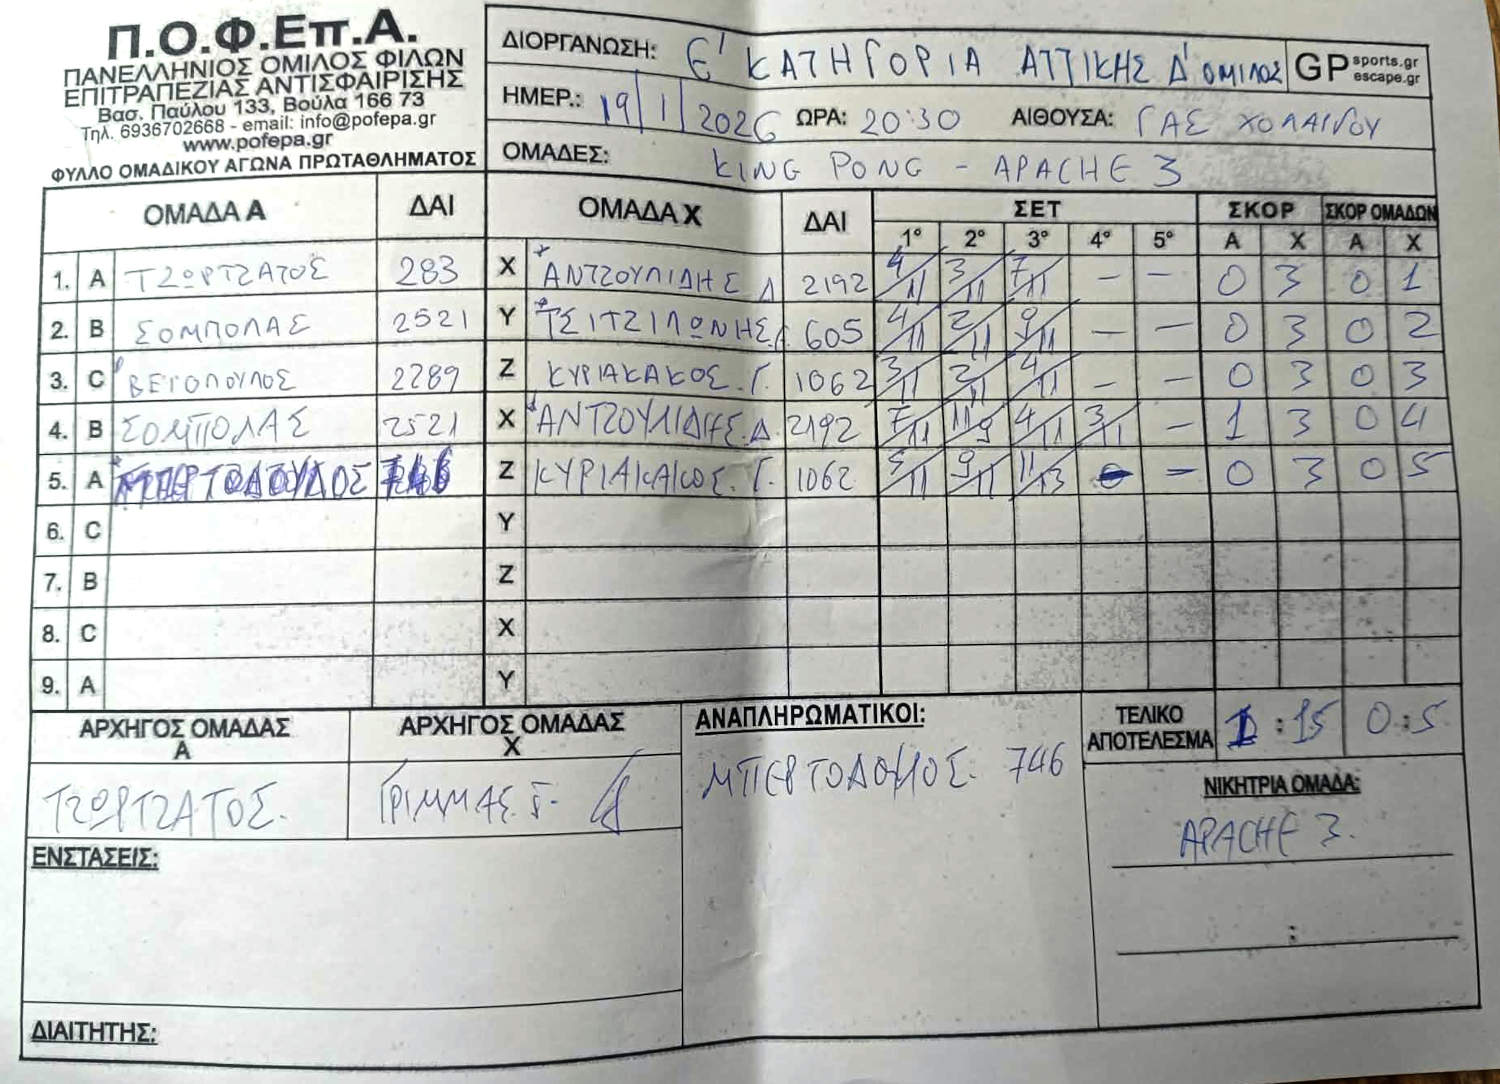 Π.Ο.Φ.Επ.Α.
ΠΑΝΕΛΛΗΝΙΟΣ ΟΜΙΛΟΣ ΦΙΛΩΝ
ΕΠΙΤΡΑΠΕΖΙΑΣ ΑΝΤΙΣΦΑΙΡΙΣΗΣ
Βασ. Παύλου 133, Βούλα 166 73
Τηλ. 6936702668 - email: info@pofepa.gr
www.pofepa.gr
ΦΥΛΛΟ ΟΜΑΔΙΚΟΥ ΑΓΩΝΑ ΠΡΩΤΑΘΛΗΜΑΤΟΣ
ΔΙΟΡΓΑΝΩΣΗ: Ε' ΚΑΤΗΓΟΡΙΑ ΑΤΤΙΚΗΣ Δ' ΟΜΙΛΟΣ
GP sports.gr escape.gr
ΗΜΕΡ.: 19/1/2026 ΩΡΑ: 20:30 ΑΙΘΟΥΣΑ: ΓΑΣ ΧΟΛΑΡΓΟΥ
ΟΜΑΔΕΣ: KING PONG - APACHE 3
ΟΜΑΔΑ Α ΔΑΙ ΟΜΑΔΑ Χ ΔΑΙ ΣΕΤ ΣΚΟΡ ΣΚΟΡ ΟΜΑΔΩΝ
1° 2° 3° 4° 5° Α Χ Α Χ
1. A ΤΖΩΡΤΖΑΤΟΣ 283 X *ΑΝΤΖΟΥΛΙΔΗΣ Δ 2192 4/11 3/11 7/11 – – 0 3 0 1
2. B ΣΟΜΠΟΛΑΣ 2521 Y *ΤΣΙΤΖΙΛΩΝΗΣ 605 4/11 2/11 9/11 – – 0 3 0 2
3. C ΒΕΡΟΠΟΥΛΟΣ 2289 Z ΚΥΡΙΑΚΑΚΟΣ. Γ. 1062 3/11 2/11 4/11 – – 0 3 0 3
4. B ΣΟΜΠΟΛΑΣ 2521 X *ΑΝΤΖΟΥΛΙΔΗΣ. Δ. 2192 7/11 11/9 4/11 3/11 – 1 3 0 4
5. A *ΜΠΕΡΤΟΔΟΥΛΟΣ 746 Z ΚΥΡΙΑΚΑΚΟΣ. Γ. 1062 5/11 9/11 11/13 – 0 3 0 5
6. C Y
7. B Z
8. C X
9. A Y
ΑΡΧΗΓΟΣ ΟΜΑΔΑΣ Α
ΑΡΧΗΓΟΣ ΟΜΑΔΑΣ Χ
ΑΝΑΠΛΗΡΩΜΑΤΙΚΟΙ:
ΤΕΛΙΚΟ ΑΠΟΤΕΛΕΣΜΑ 1 : 15 0 : 5
ΤΖΩΡΤΖΑΤΟΣ.
ΓΡΙΜΜΑΣ. Γ.
746
ΝΙΚΗΤΡΙΑ ΟΜΑΔΑ:
APACHE 3.
:
ΕΝΣΤΑΣΕΙΣ:
ΔΙΑΙΤΗΤΗΣ: